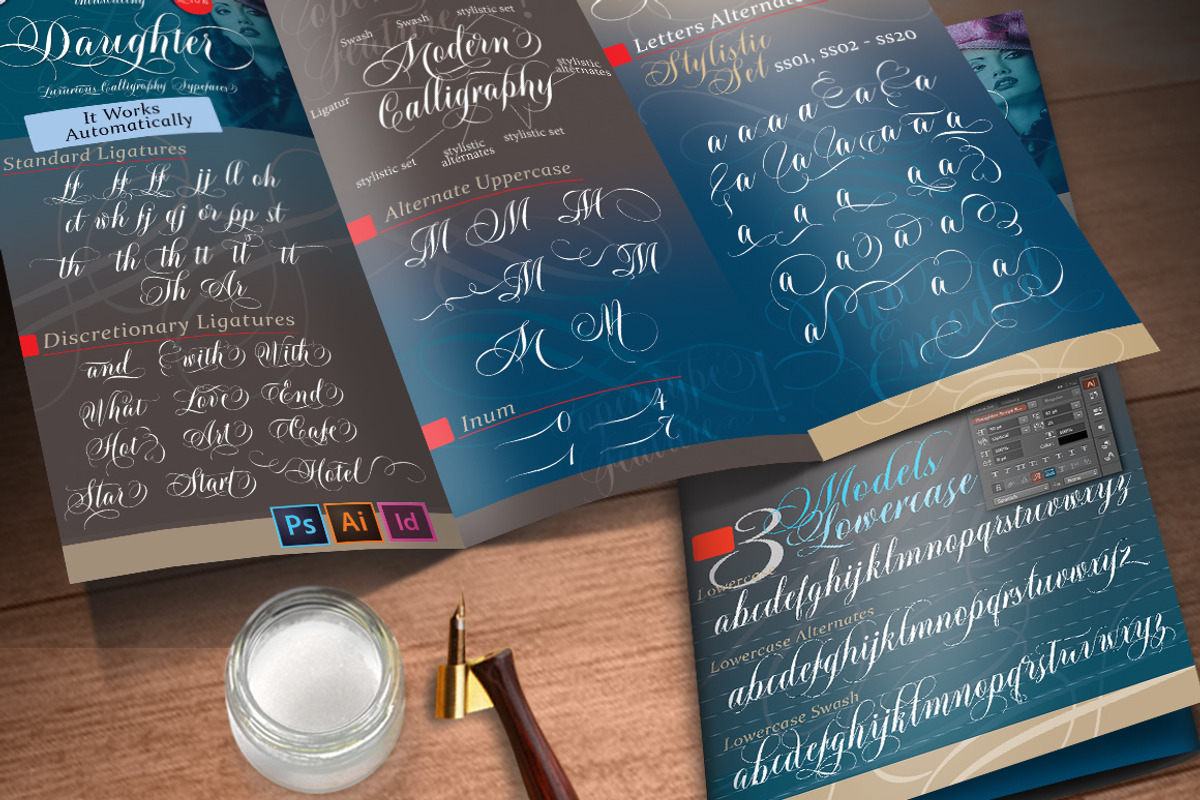 Introducing
Daughter
Luxurious Calligraphy Typefaces
It Works
Automatically
Standard Ligatures
ff ff ff jj ll oh
ct wh fj gj or pp st
th th th tt tt tt
Th Ar
Discretionary Ligatures
and with With
What Love End
Hot Art Cafe
Star Start Hotel
Ps Ai Id
Swash Swash stylistic set
Modern
Calligraphy
stylistic
alternates
Ligatur
stylistic set
stylistic
alternates
stylistic set
Alternate Uppercase
M M M
M M
M M
Inum
0 4
1 7
Letters Alternate
Stylistic
Set SS01, SS02 - SS20
a a a a a a a
a a a a a a a
a a a a a
a a a a
a a a
3 Models
Lowercase
Lowercase
abcdefghijklmnopqrstuvwxyz
Lowercase Alternates
abcdefghijklmnopqrstuvwxyz
Lowercase Swash
abcdefghijklmnopqrstuvwxyz